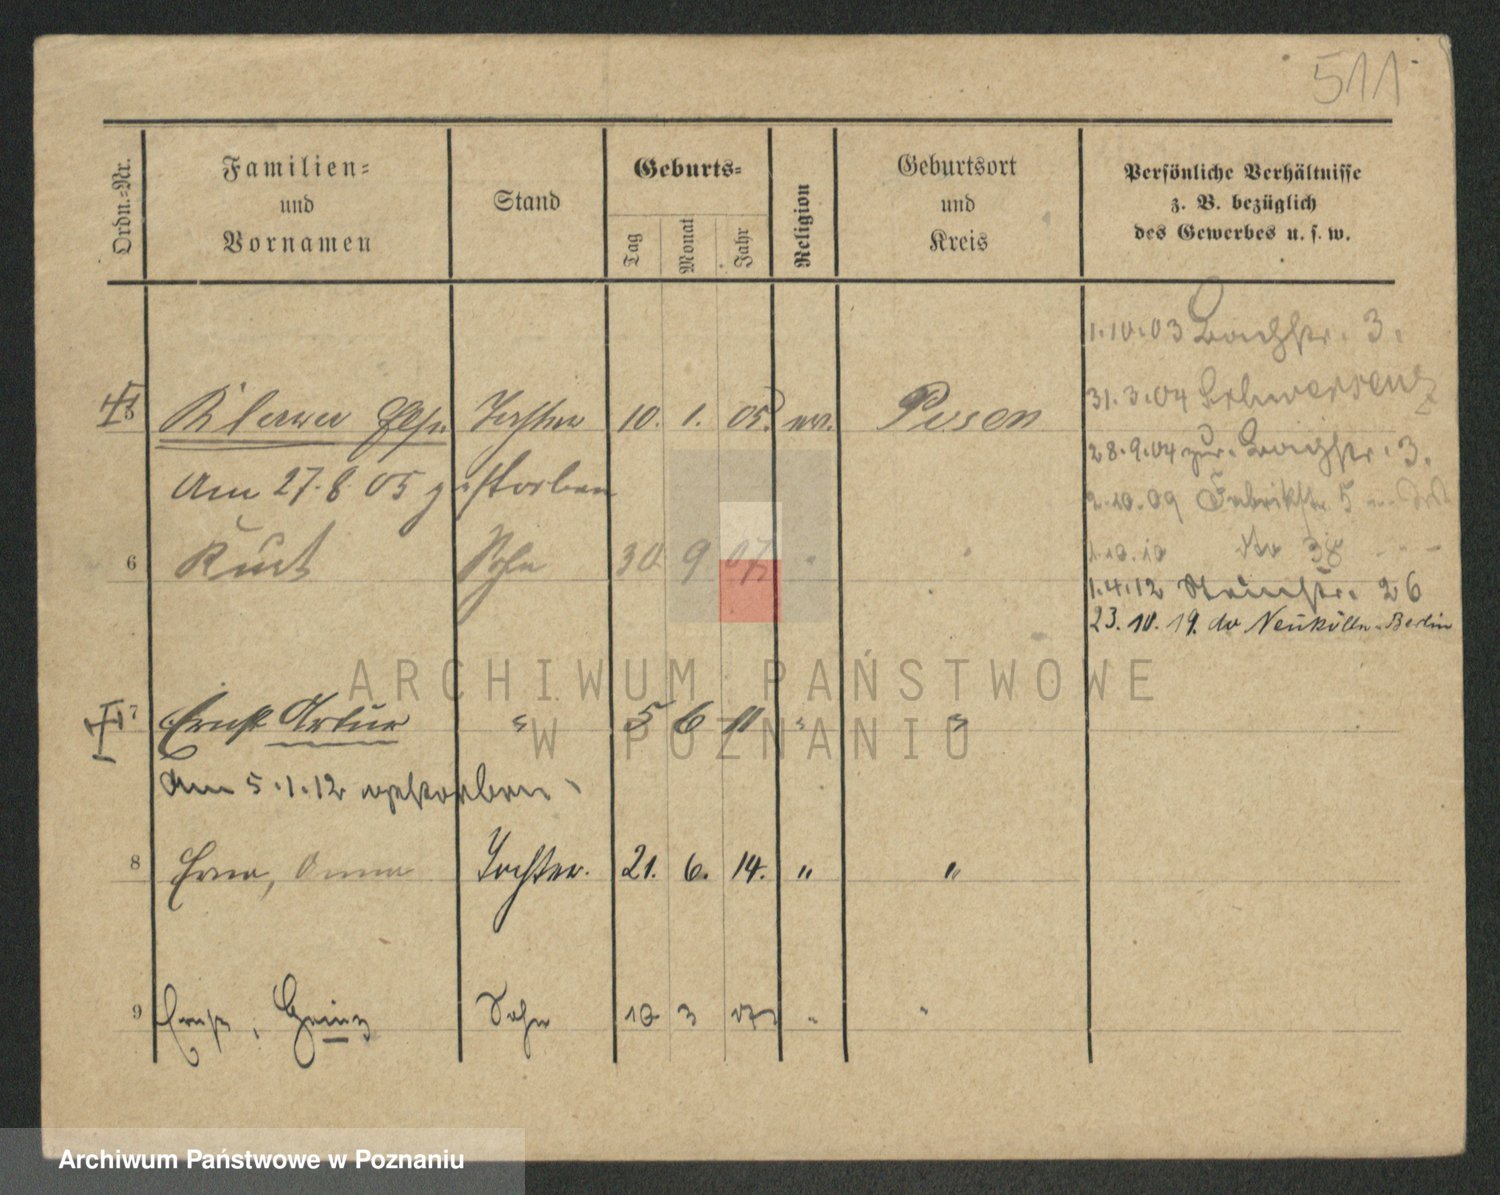 511
Ordn.-Nr.
Familien-
und
Vornamen
Stand
Geburts-
Tag
Monat
Jahr
Religion
Geburtsort
und
Kreis
Persönliche Verhältnisse
z. B. bezüglich
des Gewerbes u. s. w.
1.10.03 Bachstr. 3.
31.3.04 Schwersenz
28.9.04 zur. Bachstr. 3.
2.10.09 Fabrikstr 5
1.10.10 38
1.4.12 26
23.10.19. do Neukölln-Berlin
5 Klara Else Tochter 10. 1. 05. ev. Posen
Am 27.8 05 gestorben
6 Kurt Sohn 30 9 07 "
7 Ernst Artur " 5 6 11 " "
Am 5.1.12 gestorben
8 Erna, Anna Tochter. 21. 6. 14. " "
9 Ernst, Heinz Sohn 10 3 17 " "
ARCHIWUM PAŃSTWOWE
W POZNANIU
Archiwum Państwowe w Poznaniu